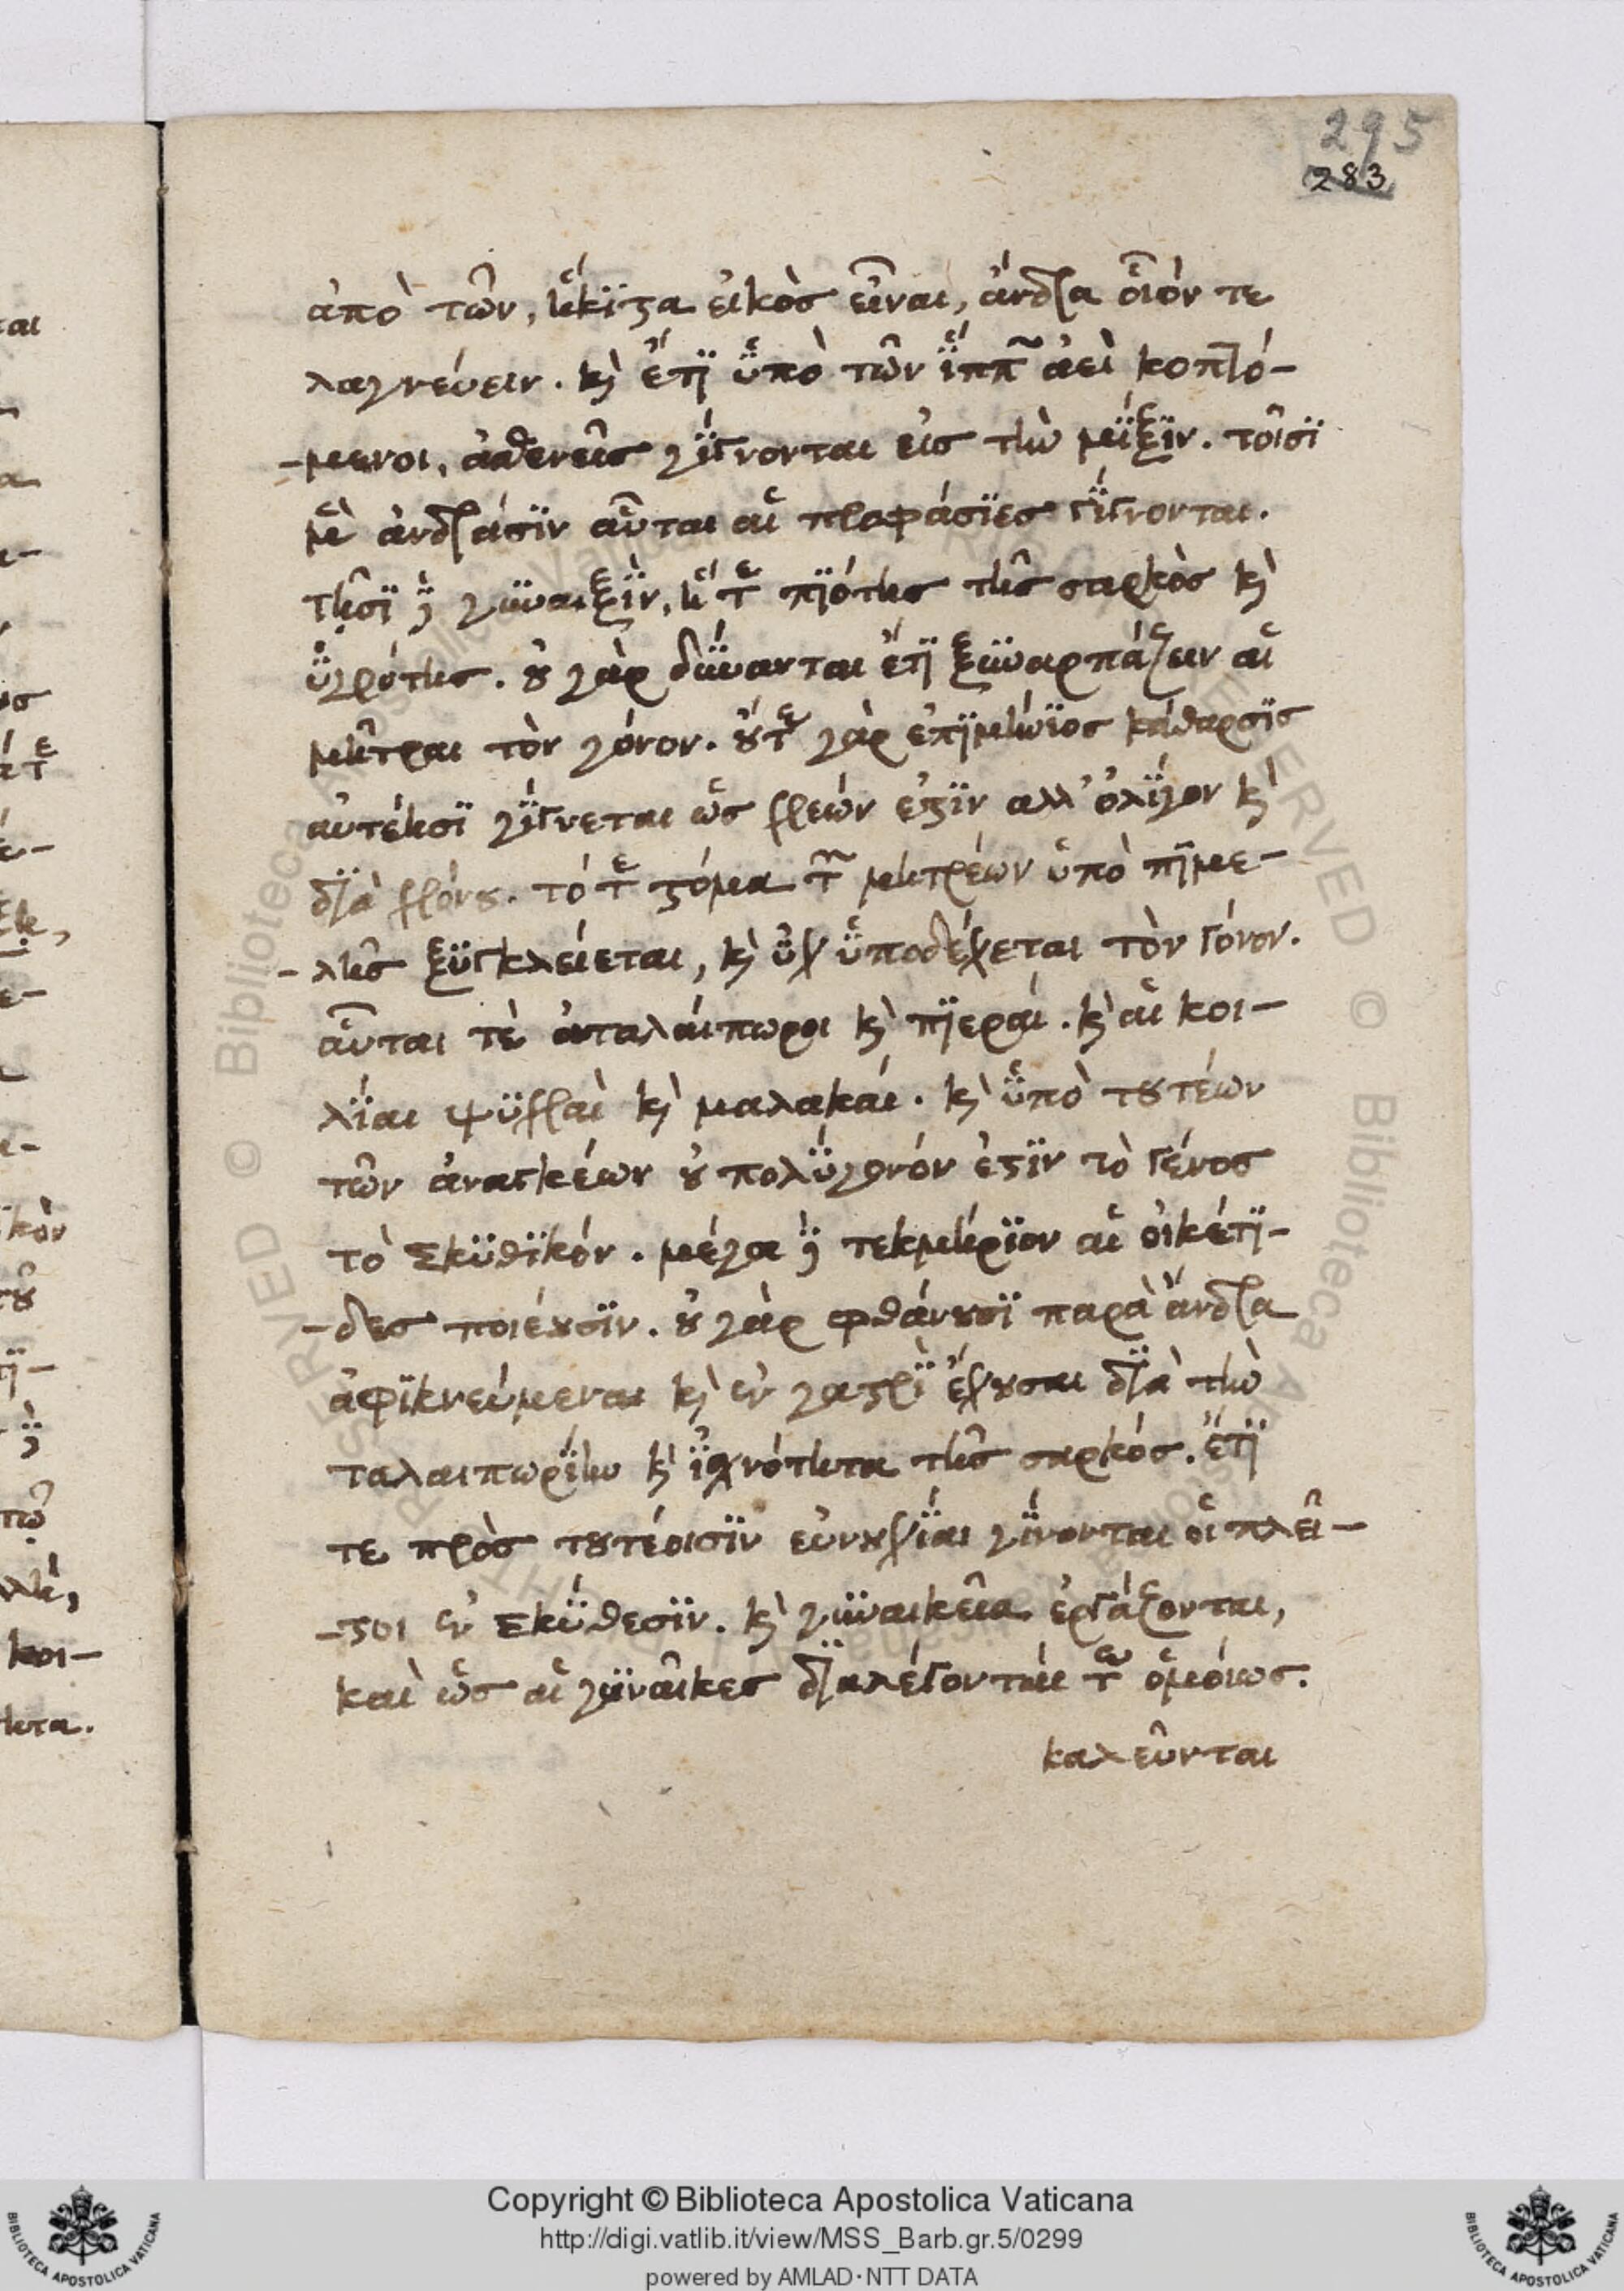 295
283
ἀπὸ τῶν, ἥκϊστα εἰκὸσ εἶναι, ἄνδρα οἷόν τε
λαγνεύειν. κὶ ἔτϊ ὑπὸ τῶν ἵππ͂ ἀεὶ κοπτό-
-μενοι, ἀσθενεῖσ γίγνονται εἰσ τὴν μεῖξϊν. τοῖσϊ
μὲ ἀνδράσϊν αὗται αἱ προφάσϊεσ γίγνονται.
τῆσϊ ȝ̈ γϋναιξὶν, ἥ τε πϊότησ τῆσ σαρκὸσ κὶ
ὑγρότησ. ȣ γὰρ δύνανται ἔτϊ ξϋναρπάζειν αἱ
μῆτραι τὸν γόνον. ȣ́τε γὰρ ἐπϊμήνϊοσ κάθαρσϊσ
αὐτέησϊ γίγνεται ὡσ χρεών ἐστϊν αλλ' ὀλίγον κὶ
δϊὰ χρόνȣ. τό τε στόμα τ͂ μητρέων ὑπὸ πϊμε-
-λῆσ ξϋγκλείεται, κὶ ȣ̓χ ὑποδέχεται τὸν γόνον.
αὗται τὲ ἀταλαίπωροι κὶ πϊεραί. κὶ αἱ κοι-
λίαι ψϋχραὶ κὶ μαλακαί. κὶ ὑπὸ τȣτέων
τῶν ἀναγκέων ȣ πολύγονόν ἐστϊν τὸ γένοσ
τὸ Σκϋθϊκόν. μέγα ȝ̈ τεκμήρϊον αἱ οἰκέτϊ-
-δεσ ποιέȣσϊν. ȣ̓ γὰρ φθάνȣσϊ παρὰ ἄνδρα
ἀφϊκνεύμεναι κὶ ἐν γαστρὶ ἔχȣσαι δϊὰ τὴν
ταλαιπωρίην κὶ ἰσχνότητα τῆσ σαρκόσ. ἔτϊ
τε πρὸσ τȣτέοισϊν εὐνȣχίαι γίνονται οἱ πλεῖ-
-στοι ἐν Σκύθεσϊν. κὶ γϋναικεῖα ἐργάζονται,
καὶ ὡσ αἱ γϋναῖκεσ δϊαλέγονταί τε ὁμοίωσ.
καλεῦνται
Copyright © Biblioteca Apostolica Vaticana
http://digi.vatlib.it/view/MSS_Barb.gr.5/0299
powered by AMLAD·NTT DATA